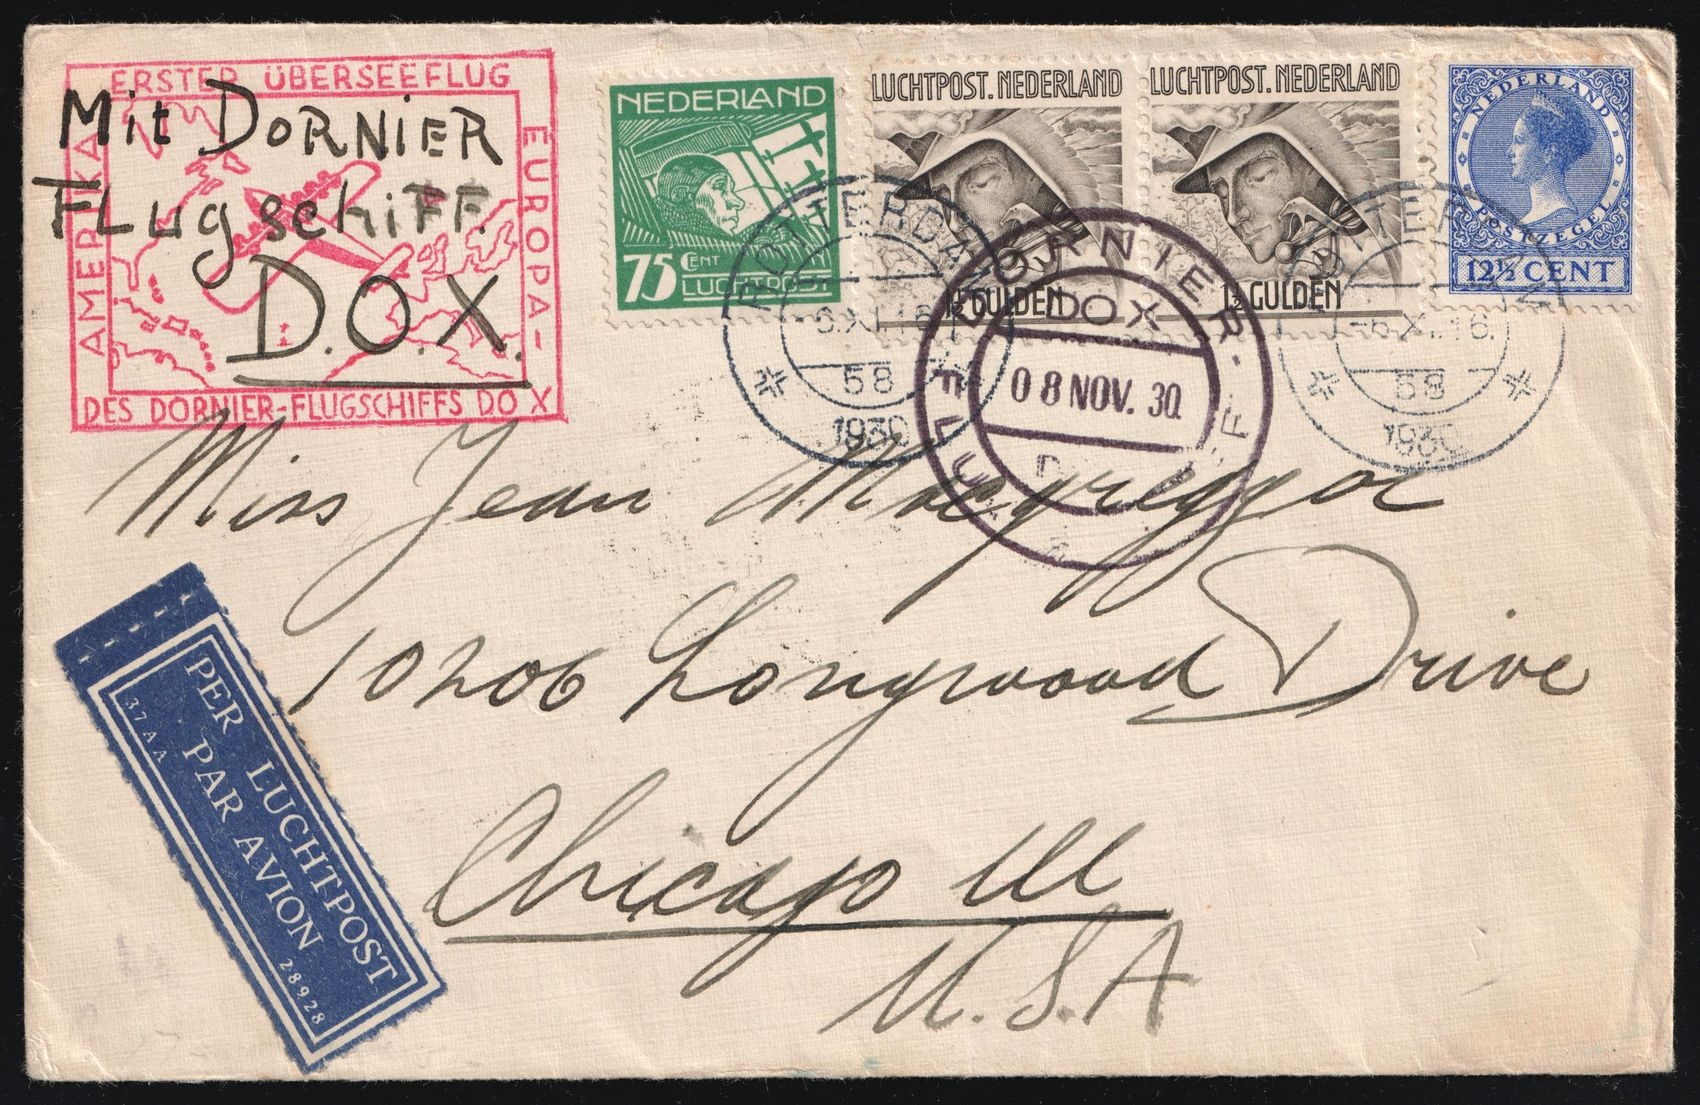 ERSTER ÜBERSEEFLUG
EUROPA-
AMERIKA
DES DORNIER-FLUGSCHIFFS DO X
Mit DORNIER
FLugschiFF.
D.O.X.
NEDERLAND
75 CENT
LUCHTPOST
LUCHTPOST. NEDERLAND
1½ GULDEN
LUCHTPOST. NEDERLAND
1½ GULDEN
NEDERLAND
POSTZEGEL
12½ CENT
ROTTERDAM
-6.XI.16.
58
1930
DORNIER-
DOX
08 NOV. 30.
ROTTERDAM
-6.XI.16.
58
1930
Miss Jean Macgreggor
10206 Longwood Drive
Chicago Ill
U.S.A
PER LUCHTPOST
PAR AVION
37AA
28928